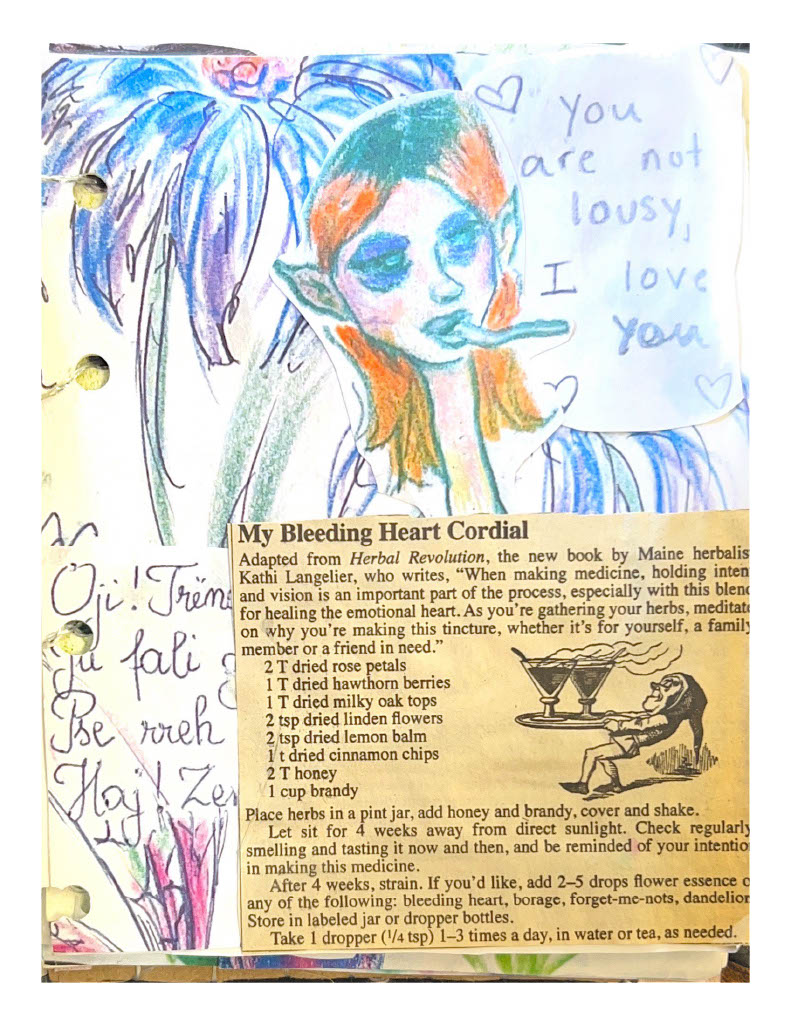 You
are not
lousy,
I love
you
My Bleeding Heart Cordial
Adapted from Herbal Revolution, the new book by Maine herbalis
Kathi Langelier, who writes, “When making medicine, holding inten
and vision is an important part of the process, especially with this blend
for healing the emotional heart. As you’re gathering your herbs, meditate
on why you’re making this tincture, whether it’s for yourself, a family
member or a friend in need.”
2 T dried rose petals
1 T dried hawthorn berries
1 T dried milky oak tops
2 tsp dried linden flowers
2 tsp dried lemon balm
1 t dried cinnamon chips
2 T honey
1 cup brandy
Place herbs in a pint jar, add honey and brandy, cover and shake.
Let sit for 4 weeks away from direct sunlight. Check regularly
smelling and tasting it now and then, and be reminded of your intentio
in making this medicine.
After 4 weeks, strain. If you’d like, add 2–5 drops flower essence o
any of the following: bleeding heart, borage, forget-me-nots, dandelion
Store in labeled jar or dropper bottles.
Take 1 dropper (¼ tsp) 1–3 times a day, in water or tea, as needed.
Oji! Trën
fali
Pse rreh
Haj! Ze